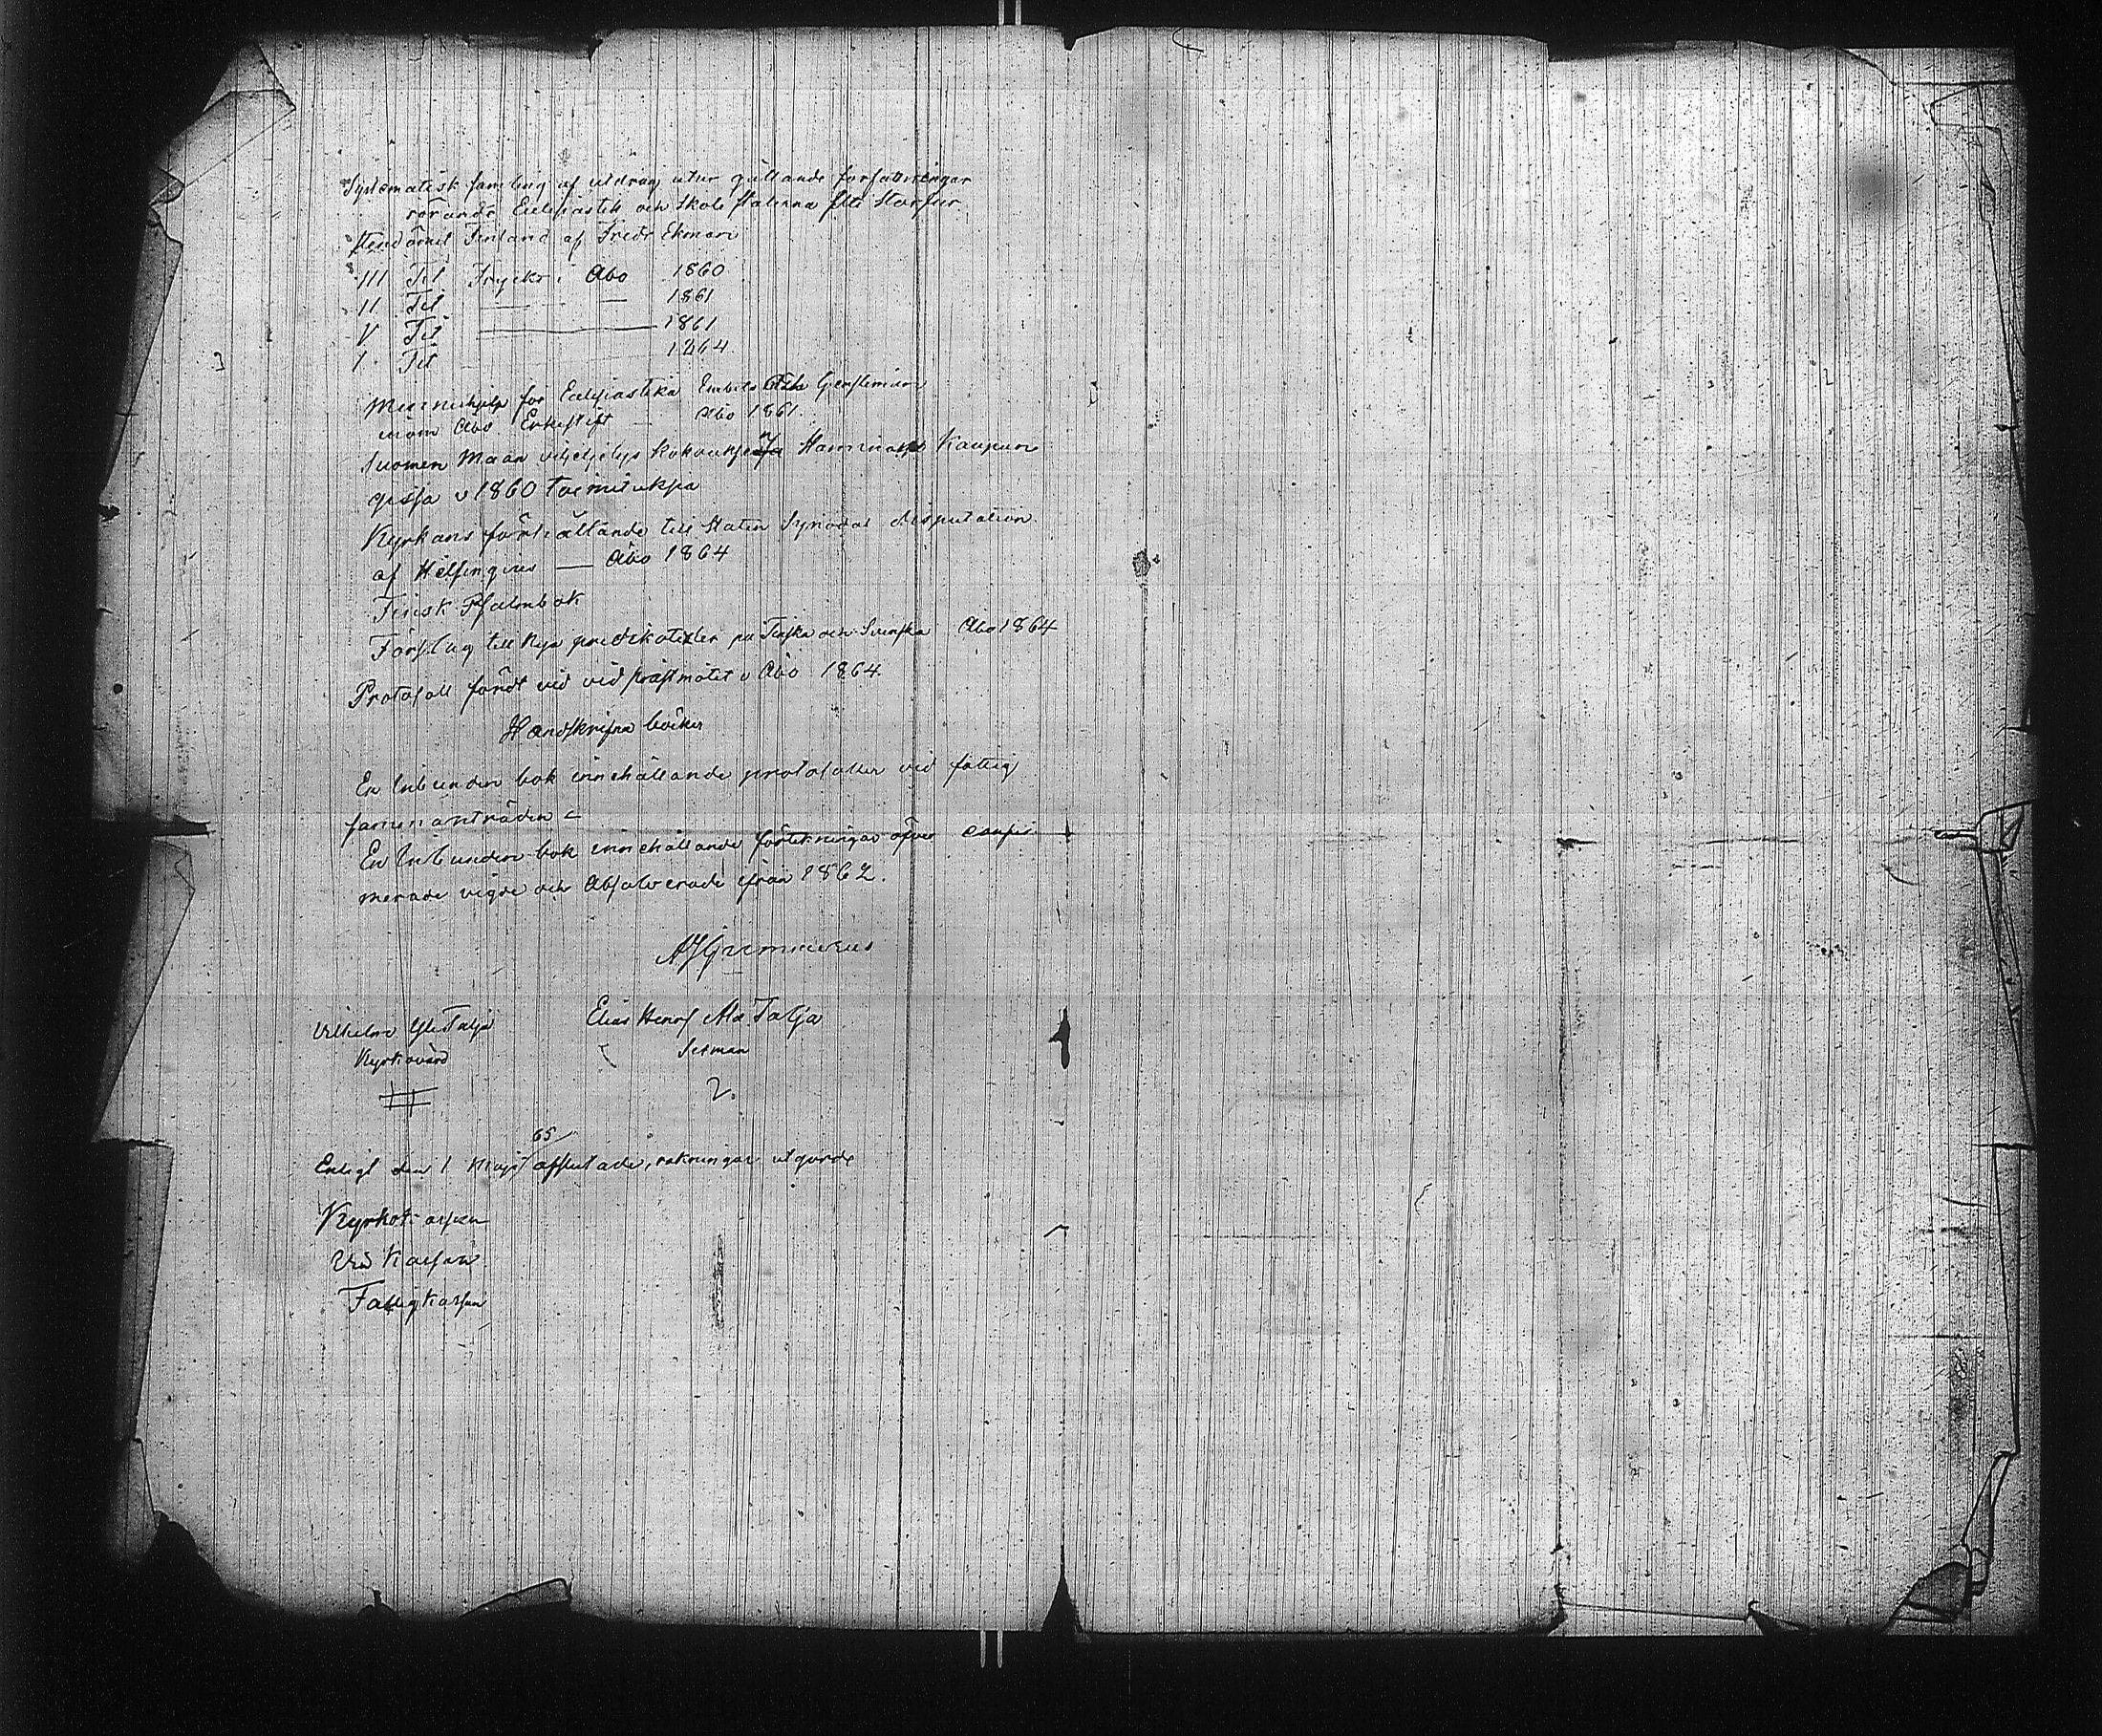 Systematisk samling af utdrag utur gällande författningar
rörande Eclesiastik och Skole staterna uti Storfur
stendömet Finland af Fredr Ekman
III Del Tryckt i Åbo 1860
II Del — — 1861
V Del ——— 1861
I. Del 1864
Minneshjelp för Eclesiastika Embets och Tjenstemän
inom Åbo Erkestift — Åbo 1861.
Suomen Maan viljelys kokouksen Haminan Kaupun
gissa v 1860 toimituksia
Kyrkans förhållande till Staten Synodal disputation
af Helsingius — Åbo 1864
Finsk Psalmbok
Förslag till Nya predikotexter på Finska och Svenska Åbo 1864
Protokoll fördt vid vid prästmötet i Åbo 1864.
Handskrifna böcker
En Inbunden bok innehållande protokoller vid fattig
sammanträden
En Inbunden bok innehållande förtekningar öfver
merade vigde och Absolverade ifrån 1862.
Vilhelm Yli Talja Elias Henr Ala Talja
Kyrkovärd Sexman
2.
65
Enligt den 1 Maji afslutade räkningar utgjorde
Kyrkokassan
Ved Kassan
Fattigkassan